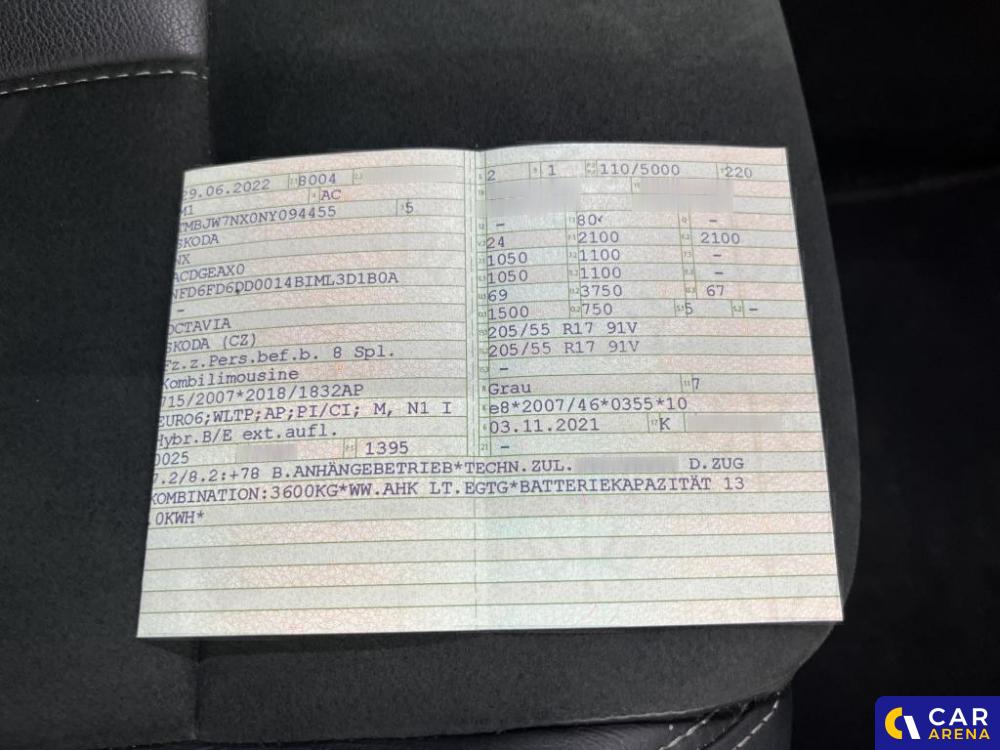 29.06.2022 8004
M1 AC
TMBJW7NX0NY094455 5
SKODA
NX
ACDGEAX0
NFD6FD6DD0014BIML3D1B0A
-
OCTAVIA
SKODA (CZ)
Fz.z.Pers.bef.b. 8 Spl.
Kombilimousine
715/2007*2018/1832AP
EURO6;WLTP;AP;PI/CI; M, N1 I
Hybr.B/E ext.aufl.
0025 1395
2 1 110/5000 220
- 80< -
24 2100 2100
1050 1100 -
1050 1100 -
69 3750 67
1500 750 5 -
205/55 R17 91V
205/55 R17 91V
-
Grau 7
e8*2007/46*0355*10
03.11.2021 K
-
7.2/8.2:+78 B.ANHÄNGEBETRIEB*TECHN.ZUL. D.ZUG
KOMBINATION:3600KG*WW.AHK LT.EGTG*BATTERIEKAPAZITÄT 13
.0KWH*
CAR
ARENA